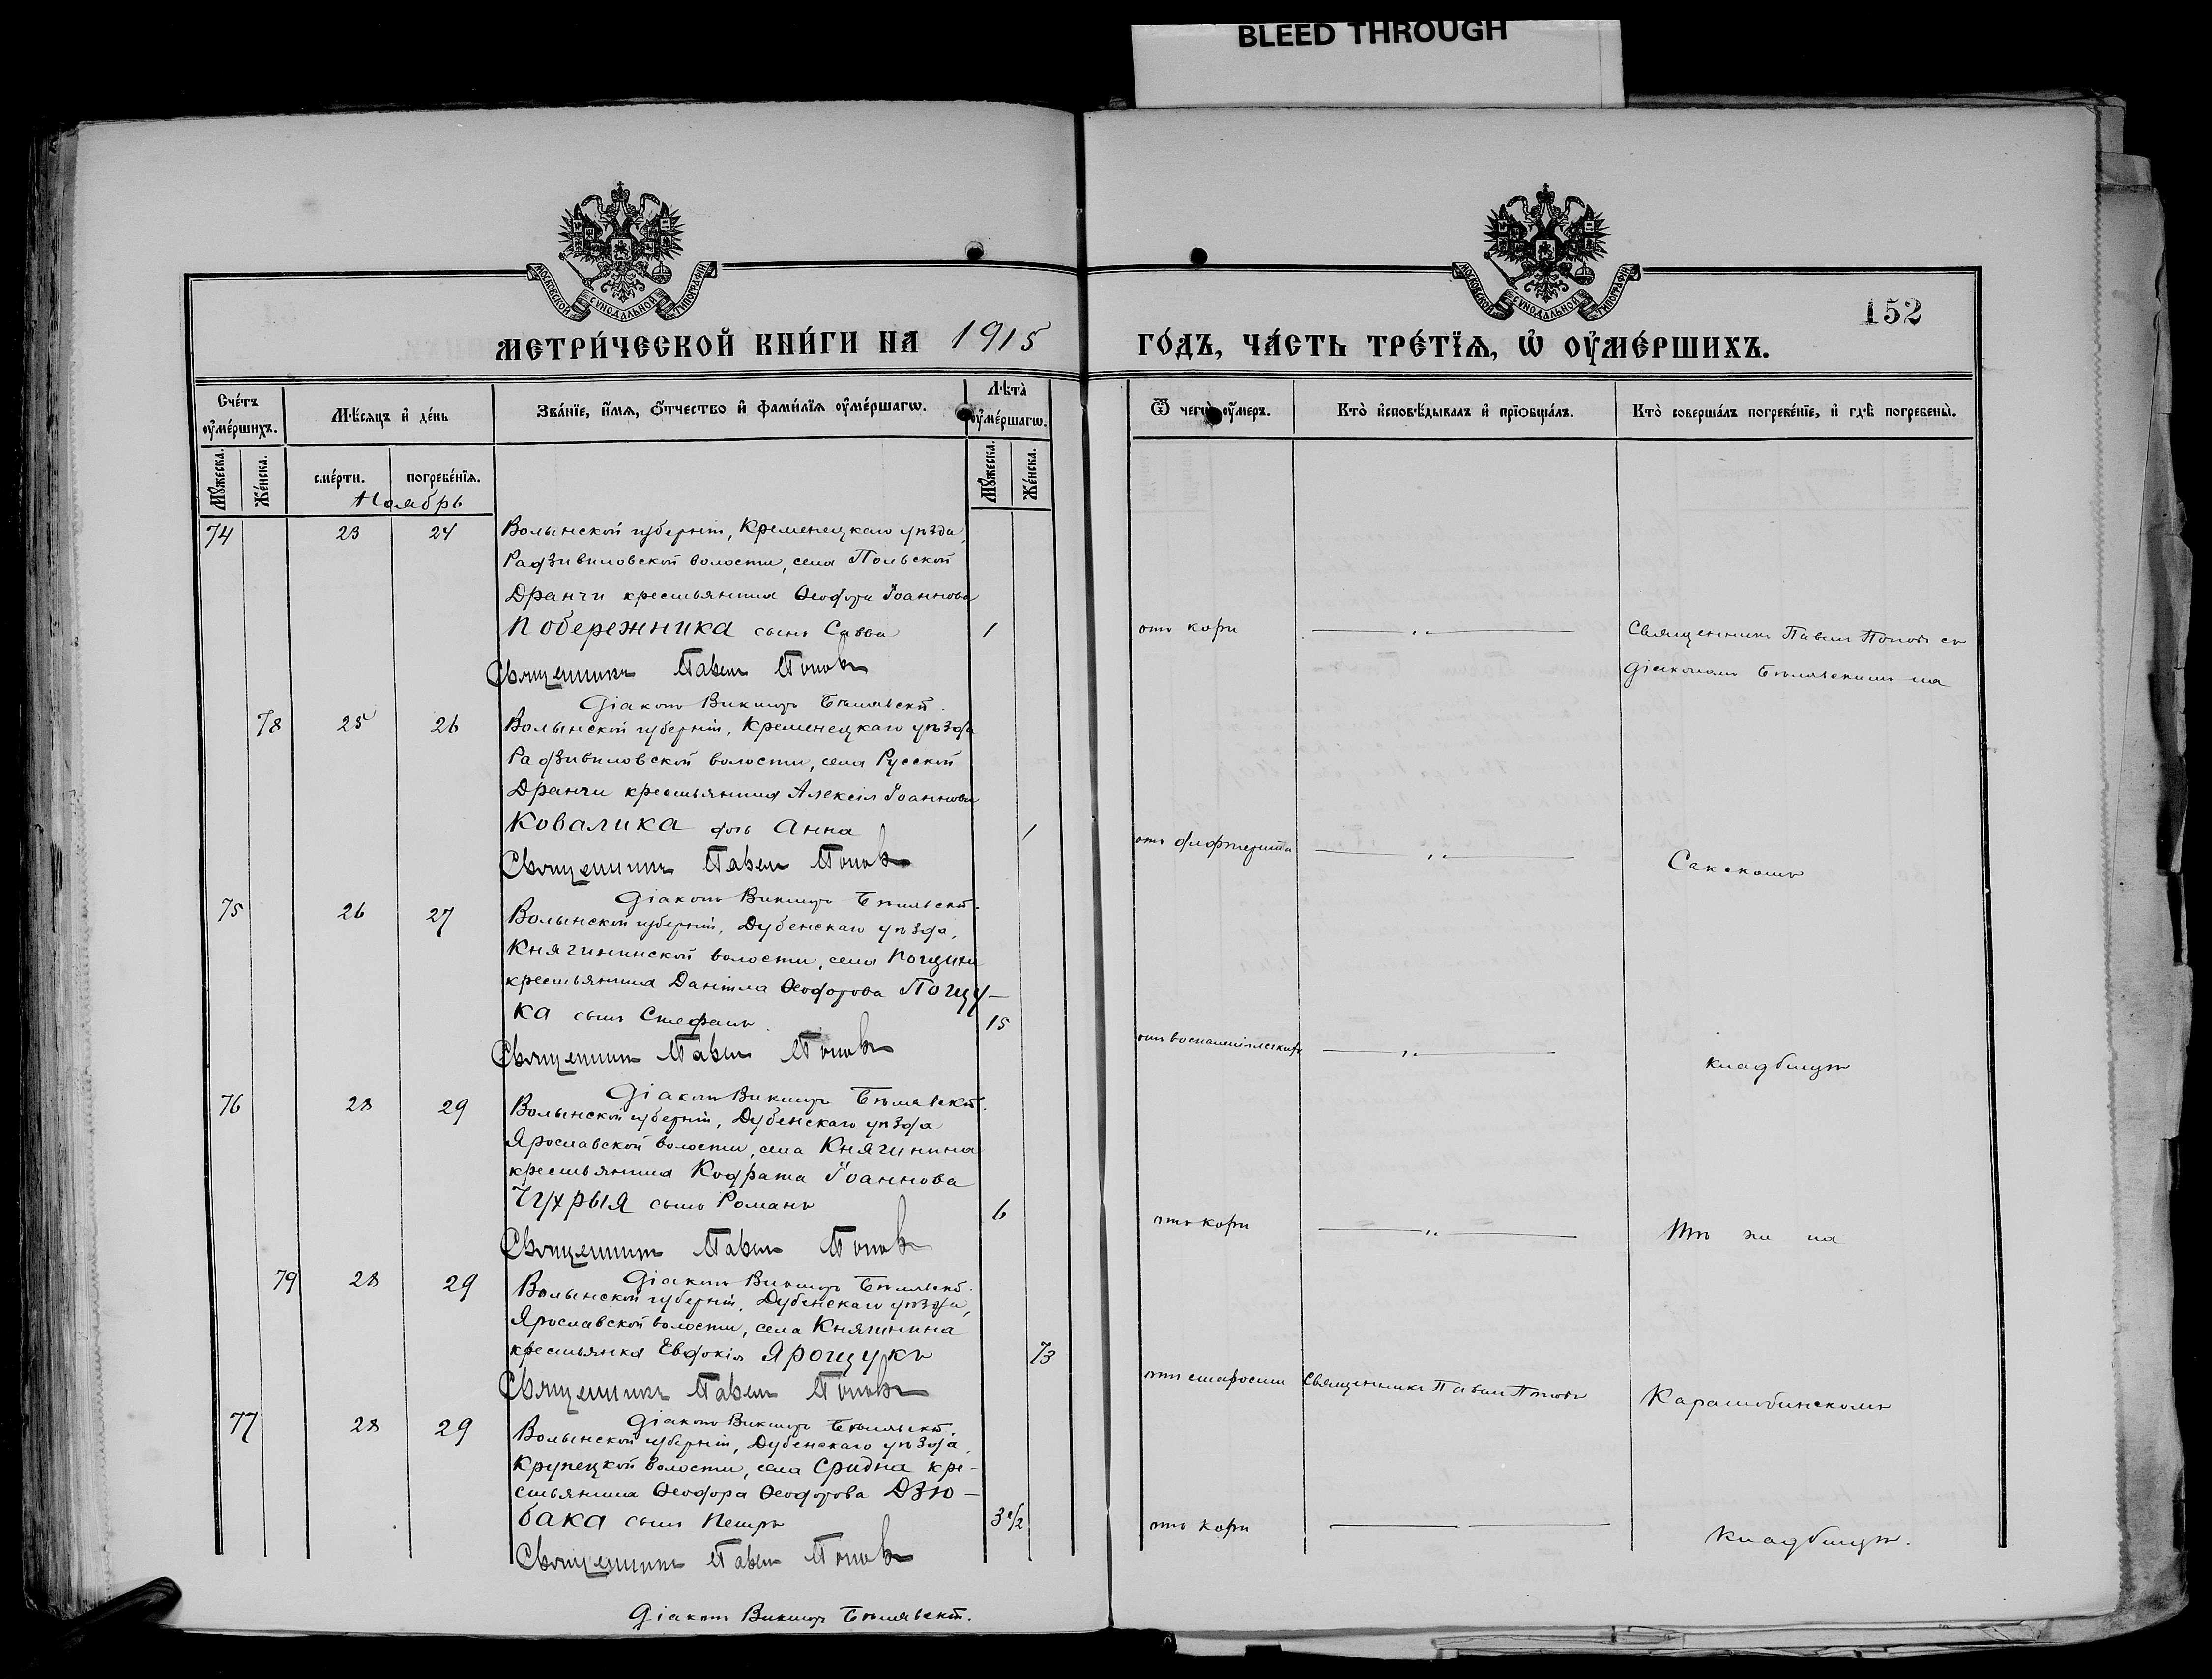 BLEED THROUGH
МОСКОВСКОЙ СУНОДАЛЬНОЙ ТИПОГРАФІИ
МОСКОВСКОЙ СУНОДАЛЬНОЙ ТИПОГРАФІИ
152
МЕТРИ́ЧЕСКОЙ КНИ́ГИ НА 1915 ГО́ДЪ, ЧА́СТЬ ТРЕ́ТЇѦ, Ѡ҆ ОУ҆МЕ́РШИХЪ.
Сче́тъ оу҆ме́ршихъ.
Мѣ́сѧцъ и҆ де́нь
Зва́нїе, и҆́мѧ, ѻ҆́тчество и҆ фами́лїѧ оу҆ме́ршагѡ.
Лѣ́та̀ оу҆ме́ршагѡ.
Ѿ чегѡ̀ оу҆́меръ.
Кто̀ и҆сповѣ́дывалъ и҆ прїѡбща́лъ.
Кто̀ соверша́лъ погребе́нїе, и҆ гдѣ̀ погребены̀.
Мꙋ́жеска.
Же́нска.
сме́рти.
погребе́нїѧ.
Мꙋ́жеска.
Же́нска.
Ноябрь
74 23 24 Волынской губерніи, Кременецкаго уѣзда,
Радзивиловской волости, села Польской
Дранчи крестьянина Ѳеодора Іоаннова
Побережника сынъ Савва 1 отъ кори — „ — Священникъ Павелъ Поповъ съ
Священникъ Павелъ Поповъ діакономъ Бѣлявскимъ на
Діаконъ Викторъ Бѣлявскій.
78 25 26 Волынской губерніи, Кременецкаго уѣзда
Радзивиловской волости, села Русской
Дранчи крестьянина Алексія Іоаннова
Ковалика дочь Анна 1 отъ дифтерита — „ — Сакскомъ
Священникъ Павелъ Поповъ
Діаконъ Викторъ Бѣлявскій.
75 26 27 Волынской губерніи, Дубенскаго уѣзда,
Княгининской волости, села
крестьянина Даніила Ѳеодорова Пощу-
ка сынъ Стефанъ. 15 отъ воспаленія легкихъ — „ — кладбищѣ
Священникъ Павелъ Поповъ
Діаконъ Викторъ Бѣлявскій.
76 28 29 Волынской губерніи, Дубенскаго уѣзда
Ярославской волости, села Княгинина
крестьянина Кодрата Іоаннова
Чухрыя сынъ Романъ 6 отъ кори — „ — Тѣ же на
Священникъ Павелъ Поповъ
Діаконъ Викторъ Бѣлявскій.
79 28 29 Волынской губерніи, Дубенскаго уѣзда,
Ярославской волости, села Княгинина
крестьянка Евдокія Ярощукъ 73 отъ старости Священникъ Павелъ Поповъ Карашобинскомъ
Священникъ Павелъ Поповъ
Діаконъ Викторъ Бѣлявскій.
77 28 29 Волынской губерніи, Дубенскаго уѣзда,
Крупецкой волости, села Сридна кре-
стьянина Ѳеодора Ѳеодорова Дзю-
бака сынъ Петръ 3 1/2 отъ кори — кладбищѣ.
Священникъ Павелъ Поповъ
Діаконъ Викторъ Бѣлявскій.